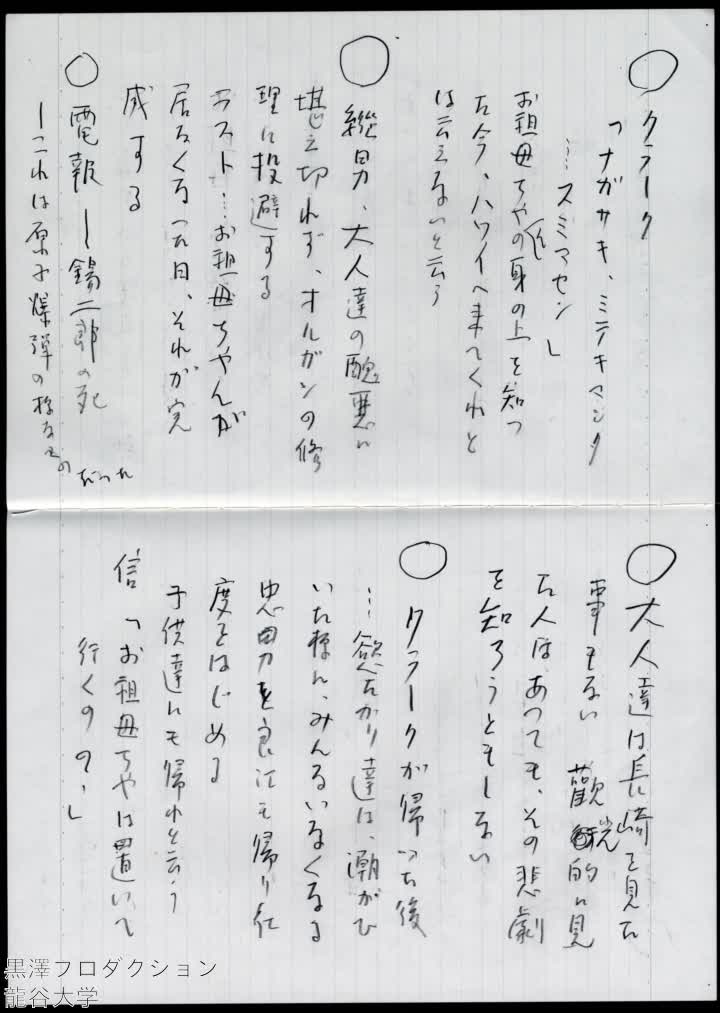 ○ クラーク
「ナガサキ、ミテキマシタ
…スミマセン」
お祖母ちゃんの身の上を知っ
た今、ハワイへ来てくれと
は云えないと云う
○ 縦男、大人達の醜悪に
堪え切れず、オルガンの修
理に投避する
ラスト…お祖母ちゃんが
居なくなった日、それが完
成する
○ 電報―錫二郎の死
―これは原子爆弾の様なものだった
○ 大人達は長崎を見た
事もない 観光的に見
た人はあっても、その悲劇
を知ろうともしない
○ クラークが帰った後
…慾たかり達は、潮がひ
いた様に、みんないなくなる
忠男も良江も帰り仕
度をはじめる
子供達にも帰れと云う
信「お祖母ちゃは置いて
行くの?」
黒澤プロダクション
龍谷大学